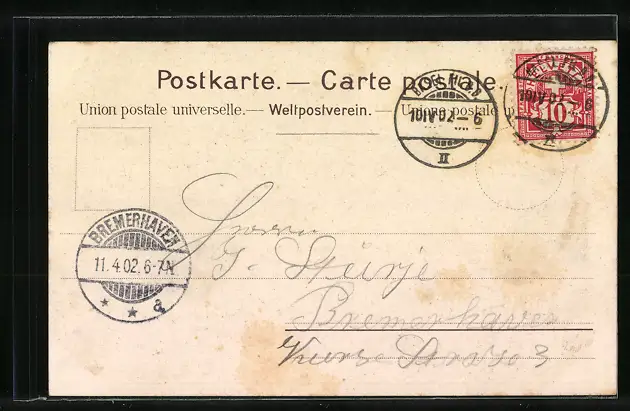 Postkarte. — Carte postale.
Union postale universelle. — Weltpostverein. — Unione postale
10 IV 02 – 6
II
HELVETIA
10
BREMERHAVEN
11.4.02.6-7N
* * a
Herrn
J. Stürje
Bremerhaven
Kurze Strasse 3